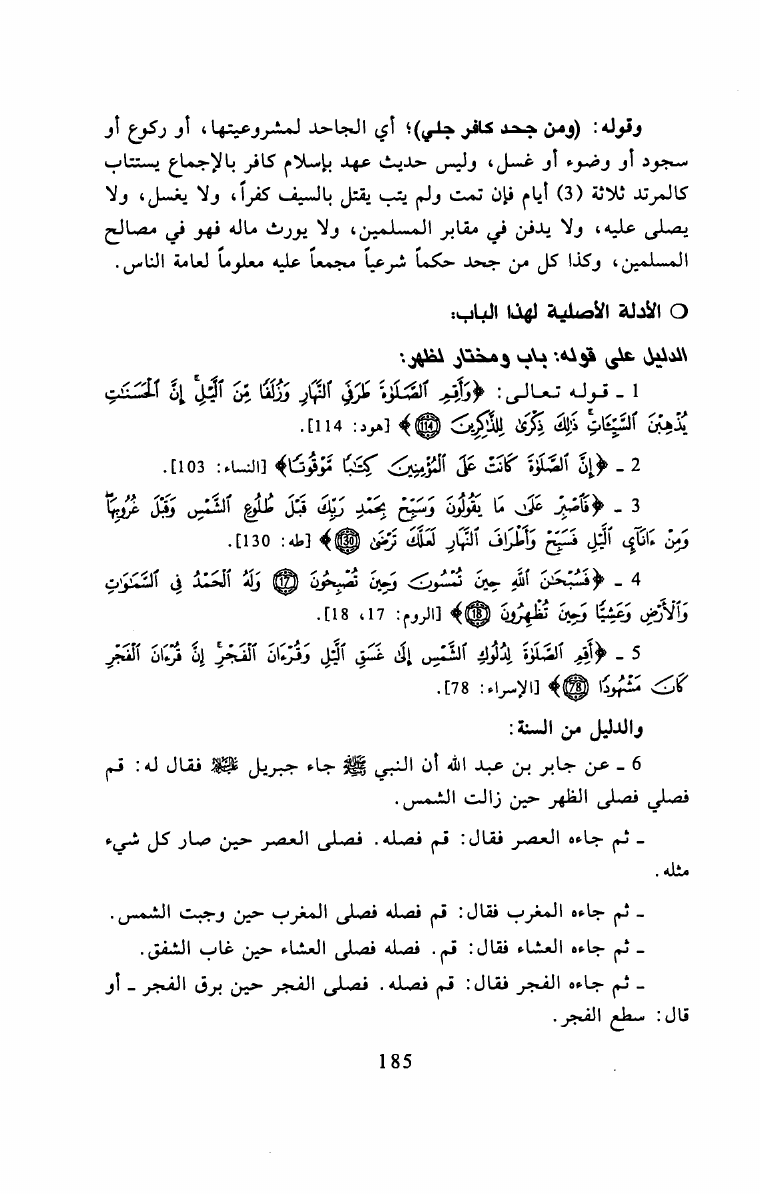 وقوله: (ومن جحد كافر جلي)؛ أي الجاحد لمشروعيتها، أو ركوع أو
سجود أو وضوء أو غسل، وليس حديث عهد بإسلام كافر بالإجماع يستتاب
كالمرتد ثلاثة (3) أيام فإن تمت ولم يتب يقتل بالسيف كفراً، ولا يغسل، ولا
يصلى عليه، ولا يدفن في مقابر المسلمين، ولا يورث ماله فهو في مصالح
المسلمين، وكذا كل من جحد حكماً شرعياً مجمعاً عليه معلوماً لعامة الناس.
○ الأدلة الأصلية لهذا الباب:
الدليل على قوله: باب ومختار لظهر:
1 ـ قوله تعالى: ﴿وَأَقِمِ ٱلصَّلَوٰةَ طَرَفَىِ ٱلنَّهَارِ وَزُلَفًا مِّنَ ٱلَّيۡلِۚ إِنَّ ٱلۡحَسَنَٰتِ
يُذۡهِبۡنَ ٱلسَّيِّـَٔاتِۚ ذَٰلِكَ ذِكۡرَىٰ لِلذَّٰكِرِينَ (114)﴾ [هود: 114].
2 ـ ﴿إِنَّ ٱلصَّلَوٰةَ كَانَتۡ عَلَى ٱلۡمُؤۡمِنِينَ كِتَٰبًا مَّوۡقُوتًا﴾ [النساء: 103].
3 ـ ﴿فَٱصۡبِرۡ عَلَىٰ مَا يَقُولُونَ وَسَبِّحۡ بِحَمۡدِ رَبِّكَ قَبۡلَ طُلُوعِ ٱلشَّمۡسِ وَقَبۡلَ غُرُوبِهَاۖ
وَمِنۡ ءَانَآيِٕ ٱلَّيۡلِ فَسَبِّحۡ وَأَطۡرَافَ ٱلنَّهَارِ لَعَلَّكَ تَرۡضَىٰ (130)﴾ [طه: 130].
4 ـ ﴿فَسُبۡحَٰنَ ٱللَّهِ حِينَ تُمۡسُونَ وَحِينَ تُصۡبِحُونَ (17) وَلَهُ ٱلۡحَمۡدُ فِى ٱلسَّمَٰوَٰتِ
وَٱلۡأَرۡضِ وَعَشِيًّا وَحِينَ تُظۡهِرُونَ (18)﴾ [الروم: 17، 18].
5 ـ ﴿أَقِمِ ٱلصَّلَوٰةَ لِدُلُوكِ ٱلشَّمۡسِ إِلَىٰ غَسَقِ ٱلَّيۡلِ وَقُرۡءَانَ ٱلۡفَجۡرِۖ إِنَّ قُرۡءَانَ ٱلۡفَجۡرِ
كَانَ مَشۡهُودًا (78)﴾ [الإسراء: 78].
والدليل من السنة:
6 ـ عن جابر بن عبد الله أن النبي ﷺ جاء جبريل عليه السلام فقال له: قم
فصلي فصلى الظهر حين زالت الشمس.
ـ ثم جاءه العصر فقال: قم فصله. فصلى العصر حين صار كل شيء
مثله.
ـ ثم جاءه المغرب فقال: قم فصله فصلى المغرب حين وجبت الشمس.
ـ ثم جاءه العشاء فقال: قم. فصله فصلى العشاء حين غاب الشفق.
ـ ثم جاءه الفجر فقال: قم فصله. فصلى الفجر حين برق الفجر ـ أو
قال: سطع الفجر.
185